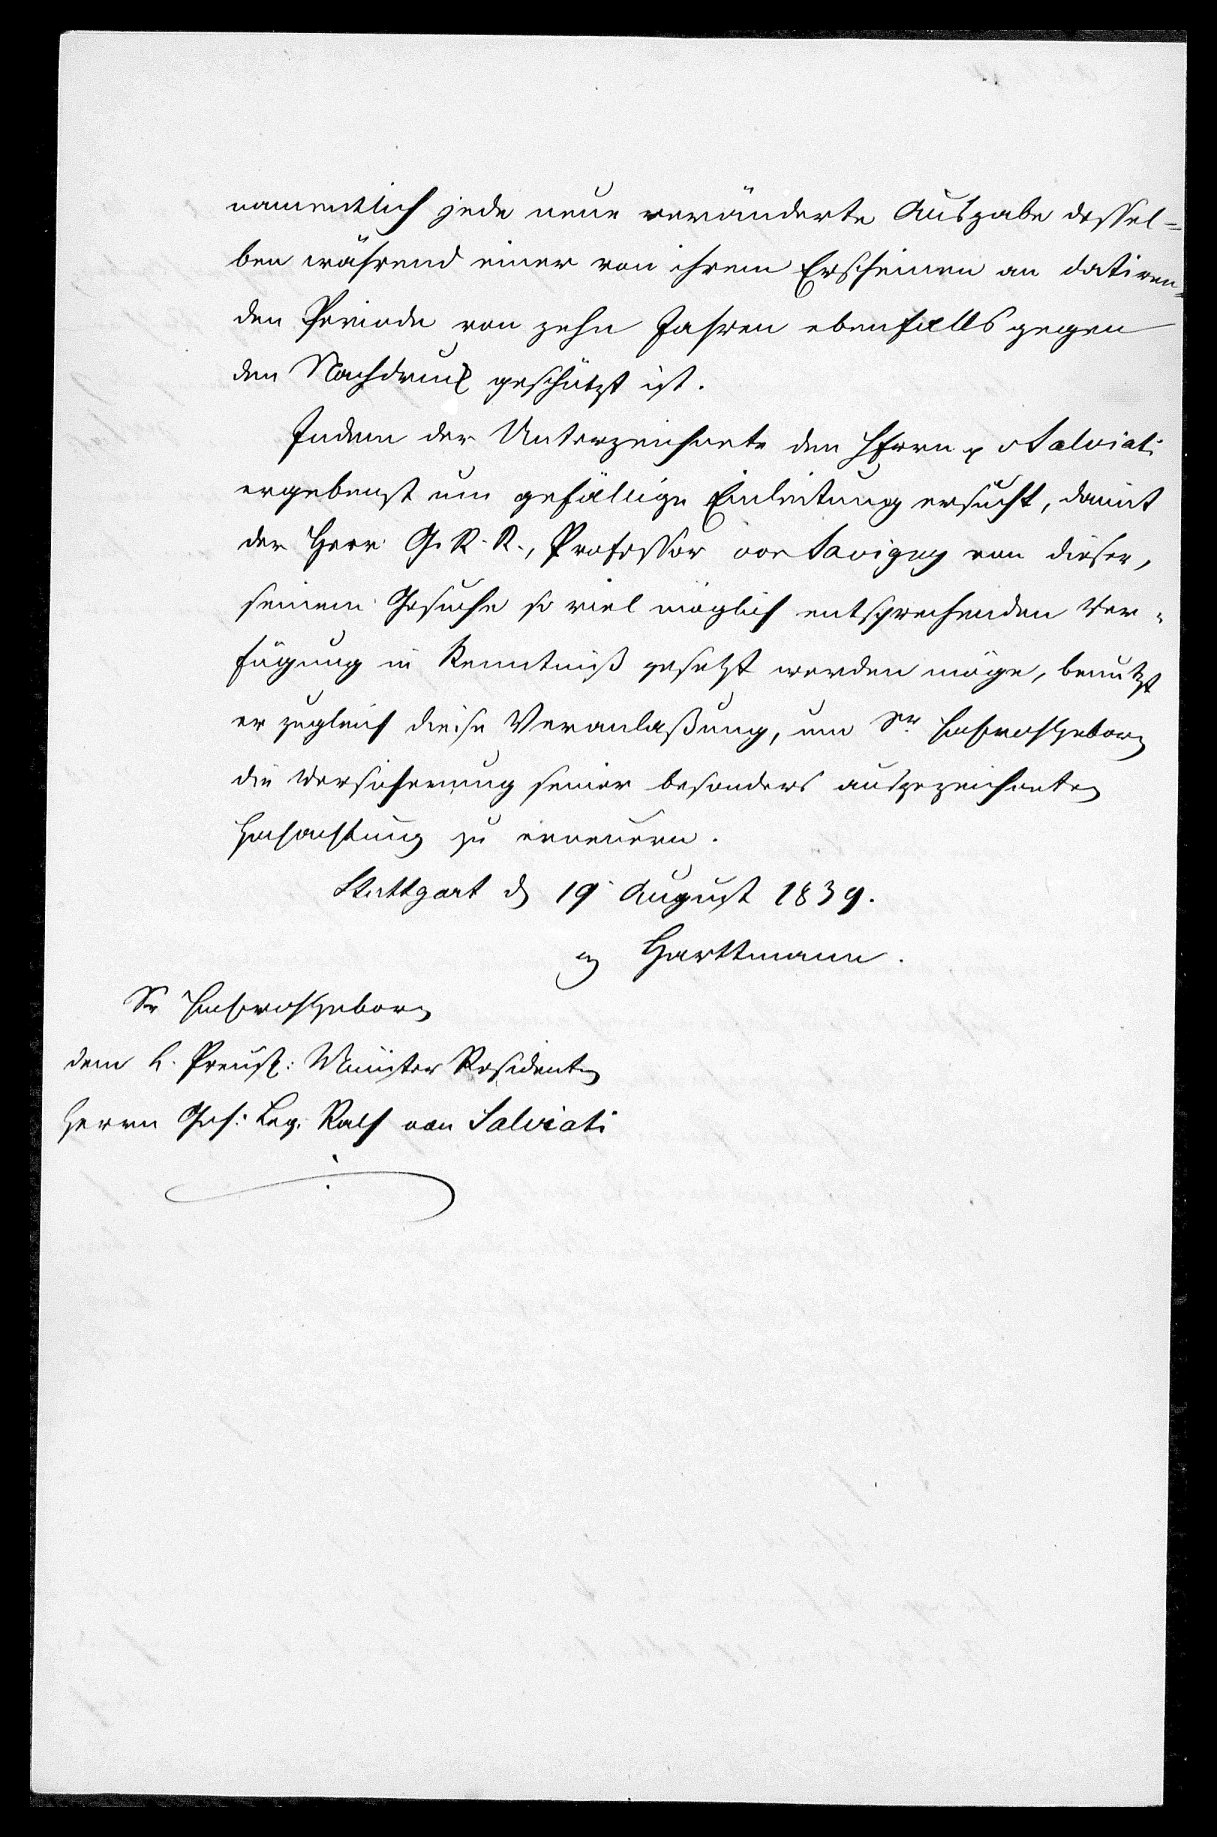 namentlich jede neue veränderte Ausgabe dessel-
ben während einer von ihrem Erscheinen an datiren-
den Periode von zehn Jahren ebenfalls gegen
den Nachdruck geschützt ist.
Indem der Unterzeichnete den Herrn p v Salviati
ergebenst um gefällige Einleitung ersucht, damit
der Herr G. R. R., Professor von Savigny von dieser,
seinem Gesuche so viel möglich entsprechenden Ver-
fügung in Kenntniß gesetzt werden möge, benutzt
er zugleich diese Veranlaßung, um Sr Hochwohlgeboren
die Versicherung seiner besonders ausgezeichneten
Hochachtung zu erneuern.
Stuttgart d 19 August 1839.
Harttmann.
Sr Hochwohlgeboren
dem K. Preuß: Minister Residenten
Herrn Geh: Leg. Rath von Salviati